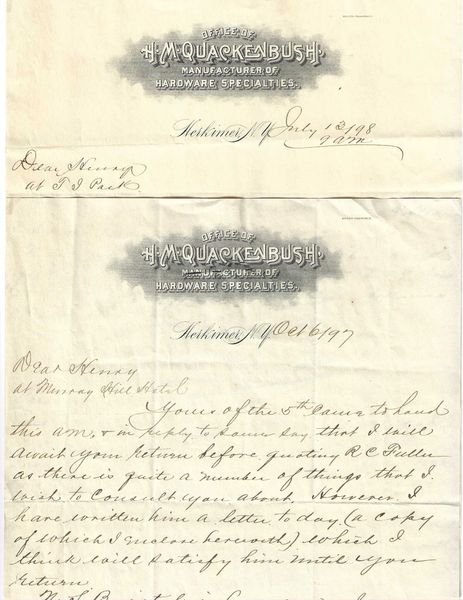 OFFICE OF
H. M. QUACKENBUSH,
MANUFACTURER OF
HARDWARE SPECIALTIES.
Herkimer, N.Y. July 13/98
9 am
Dear Henry
at T I Park
OFFICE OF
H. M. QUACKENBUSH,
MANUFACTURER OF
HARDWARE SPECIALTIES.
Herkimer, N.Y. Oct 6/97
Dear Henry
at Murray Hill Hotel
Yours of the 5th Came to hand
this am, & in reply to same say that I will
await your return before quoting R C Fuller
as there is quite a number of things that I
wish to consult you about. However I
have written him a letter to day (a copy
of which I enclose herewith) which I
think will satisfy him until you
return